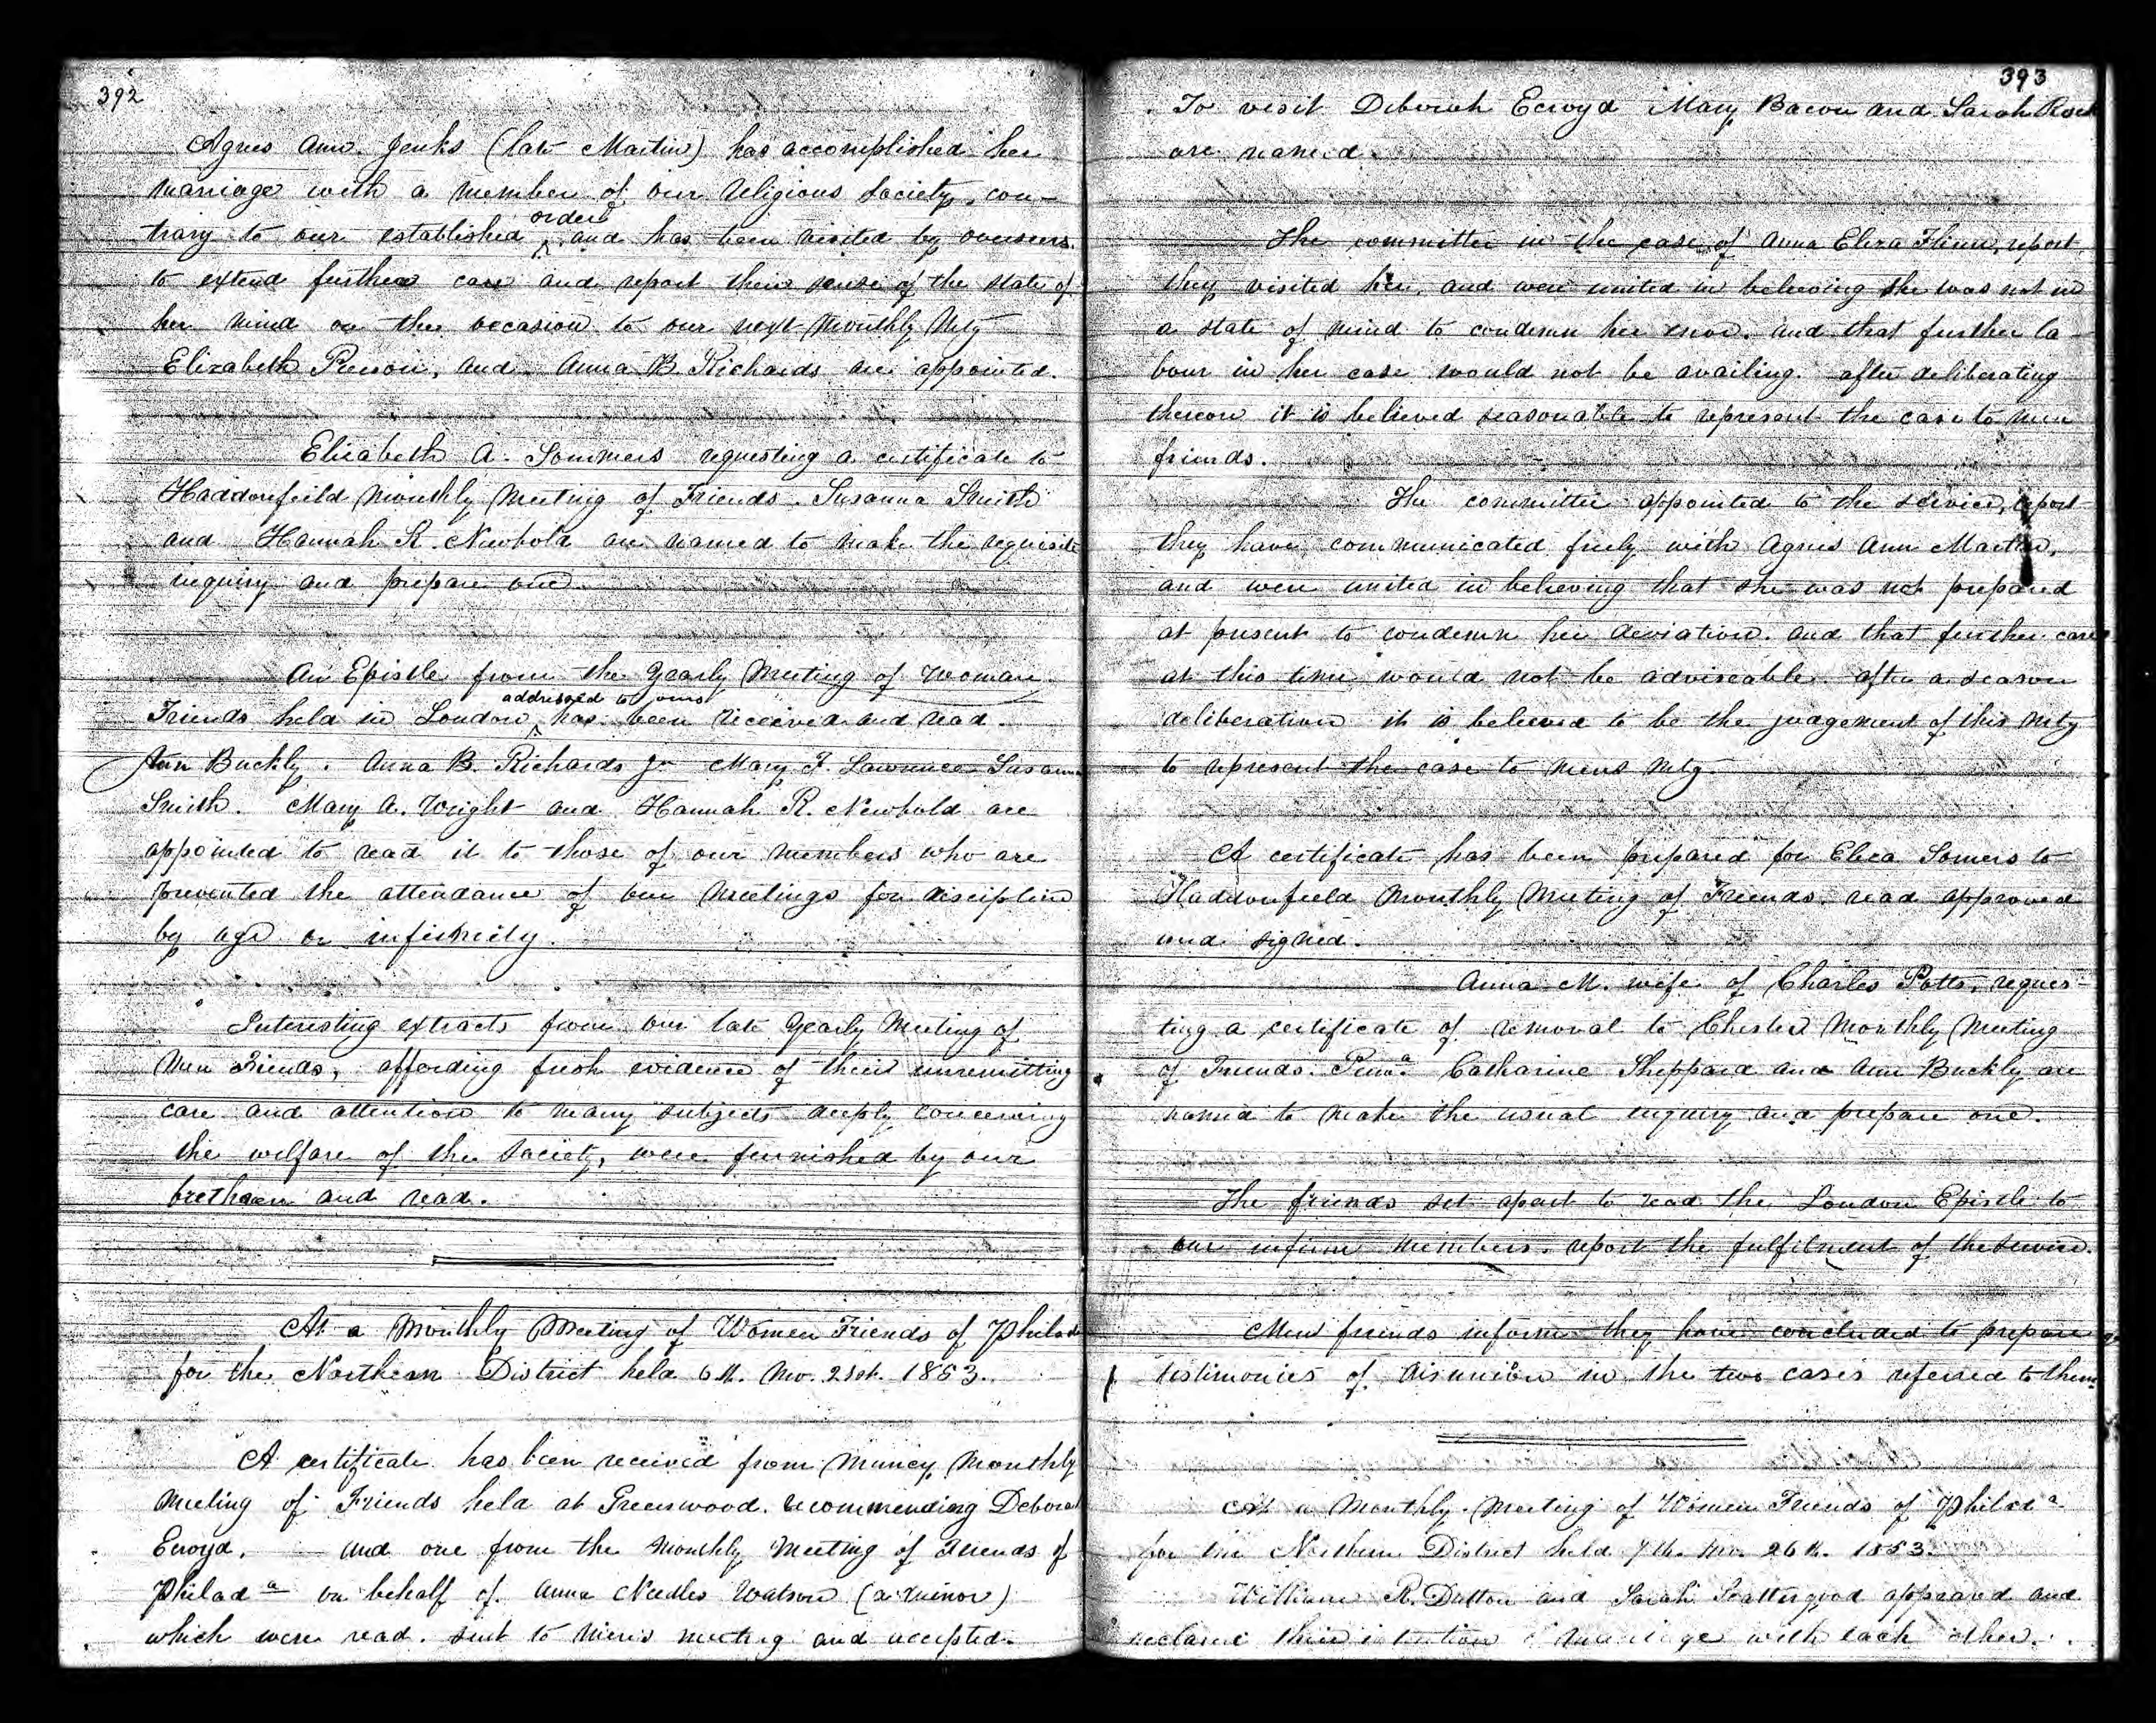 392
Agnes Ann. Jenks (late Martin) has accomplished her
marriage with a member of our religious Society, con-
trary to our established order and has been visited by overseers.
to extend further care and report their sense of the state of
her mind on the occasion to our next Monthly Mtg
Elizabeth Pierson, and Anna B. Richards are appointed.
Elizabeth A. Sommers requesting a certificate to
Haddonfeild Monthly Meeting of Friends. Susanna Smith
and Hannah R. Newbold are named to make the requisite
inquiry and prepare one
An Epistle from the Yearly Meeting of Woman
Friends held in London addressed to ours has been received and read.
Ann Buckly. Anna B. Richards Jr Mary F. Lawrence Susanna
Smith. Mary A. Wright and Hannah R. Newbold are
appointed to read it to those of our members who are
prevented the attendance of our Meetings for discipline
by age or infirmity.
Interesting extracts from our late Yearly Meeting of
Men Friends, affording fresh evidence of their unremitting
care and attention to many subjects deeply concerning
the welfare of the Society, were furnished by our
brethren and read.
At a Monthly Meeting of Women Friends of Philad
for the Northern District held 6th. Mo. 21st. 1853.
A certificate has been received from Muncy Monthly
Meeting of Friends held at Greenwood. recommending Deborah
Ecroyd. and one from the Monthly Meeting of Friends of
Philad a on behalf of Anna Needles Watson (a minor)
which were read. sent to Men's meeting and accepted.
393
To visit Deborah Ecroyd Mary Bacon and Sarah
are named.
The committee in the case of Anna Eliza Flinn, report
they visited her, and were united in believing she was not in
a state of mind to condemn her error. and that further la-
bour in her case would not be availing. after deliberating
thereon it is believed seasonable to represent the case to men
friends.
The committee appointed to the service, report
they have communicated freely with Agnes Ann Martin,
and were united in believing that she was not prepared
at present to condemn her deviation. and that further care
at this time would not be adviseable. after a season
deliberation it is believed to be the judgement of this Mtg
to represent the case to mens Mtg.
A certificate has been prepared for Eliza Somers to
Haddonfield Monthly Meeting of Friends. read approved
and signed.
Anna M. wife of Charles Potts, reques-
ting a certificate of removal to Chester Monthly Meeting
of Friends. Penna. Catharine Sheppard and Ann Buckly are
named to make the usual enquiry and prepare one.
The friends set apart to read the London Epistle to
our infirm members. report the fulfilment of the service.
Men friends inform they have concluded to prepare
testimonies of disunion in the two cases referred to them.
At a Monthly Meeting of Women Friends of Philad a
for the Northern District held 7th. Mo. 26th. 1853.
William R. Dutton and Sarah Scattergood appeared and
declared their intention of marriage with each other.